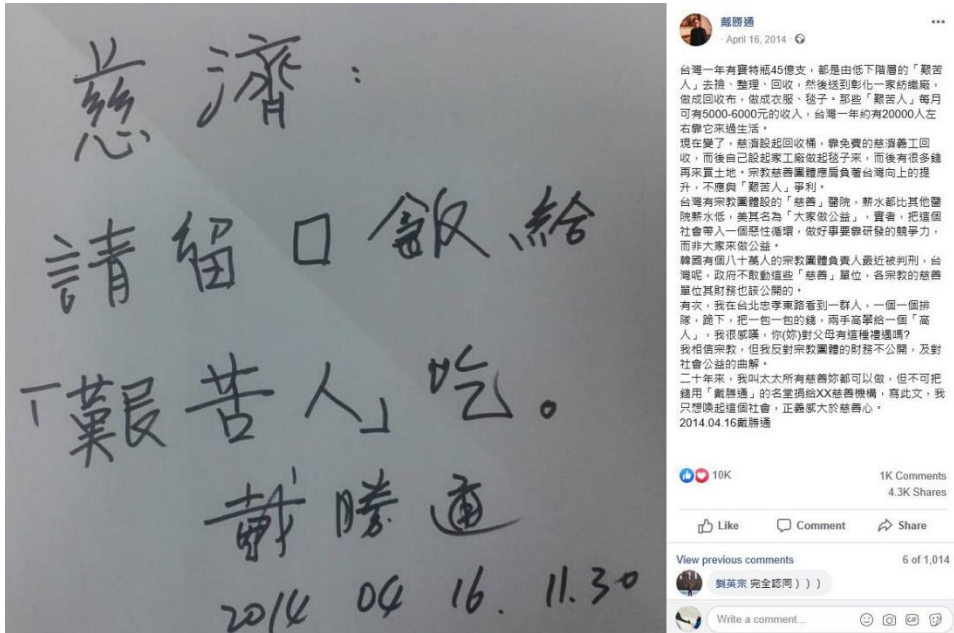 慈濟：
請留口飯給
「艱苦人」吃。
戴勝通
2014 04 16. 11.30
戴勝通
April 16, 2014
台灣一年有寶特瓶45億支，都是由低下階層的「艱苦
人」去撿、整理、回收，然後送到彰化一家紡織廠，
做成回收布，做成衣服、毯子。那些「艱苦人」每月
可有5000-6000元的收入，台灣一年約有20000人左
右靠它來過生活。
現在變了，慈濟設起回收桶，靠免費的慈濟義工回
收，而後自己設起家工廠做起毯子來，而後有很多錢
再來買土地。宗教慈善團體應肩負著台灣向上的提
升，不應與「艱苦人」爭利。
台灣有宗教團體設的「慈善」醫院，薪水都比其他醫
院薪水低，美其名為「大家做公益」，實者，把這個
社會帶入一個惡性循環，做好事要靠研發的競爭力，
而非大家來做公益。
韓國有個八十萬人的宗教團體負責人最近被判刑，台
灣呢，政府不敢動這些「慈善」單位，各宗教的慈善
單位其財務也該公開的。
有次，我在台北忠孝東路看到一群人，一個一個排
隊，跪下，把一包一包的錢，兩手高舉給一個「高
人」，我很感嘆，你(妳)對父母有這種禮遇嗎?
我相信宗教，但我反對宗教團體的財務不公開，及對
社會公益的曲解。
二十年來，我叫太太所有慈善妳都可以做，但不可把
錢用「戴勝通」的名堂捐給XX慈善機構，寫此文，我
只想喚起這個社會，正義感大於慈善心。
2014.04.16戴勝通
10K
1K Comments
4.3K Shares
Like Comment Share
View previous comments 6 of 1,014
劉英宗 完全認同）））
Write a comment...
GIF